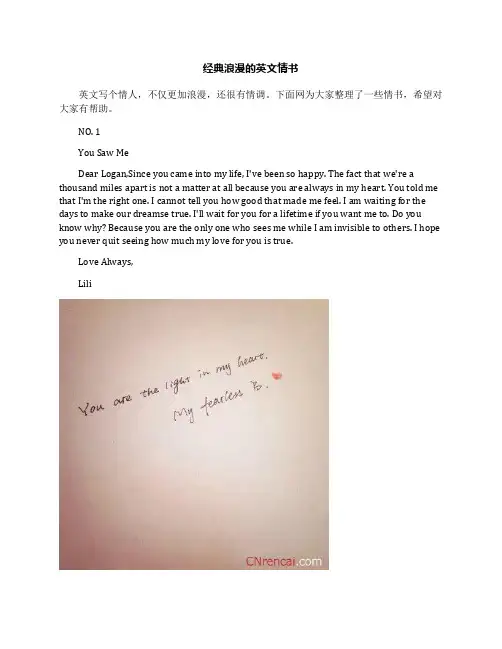 经典浪漫的英文情书
英文写个情人，不仅更加浪漫，还很有情调。下面网为大家整理了一些情书，希望对
大家有帮助。
NO. 1
You Saw Me
Dear Logan,Since you came into my life, I've been so happy. The fact that we're a
thousand miles apart is not a matter at all because you are always in my heart. You told me
that I'm the right one. I cannot tell you how good that made me feel. I am waiting for the
days to make our dreamse true. I'll wait for you for a lifetime if you want me to. Do you
know why? Because you are the only one who sees me while I am invisible to others. I hope
you never quit seeing how much my love for you is true.
Love Always,
Lili
You are the light in my heart.
My fearless B.
CNrencai.com